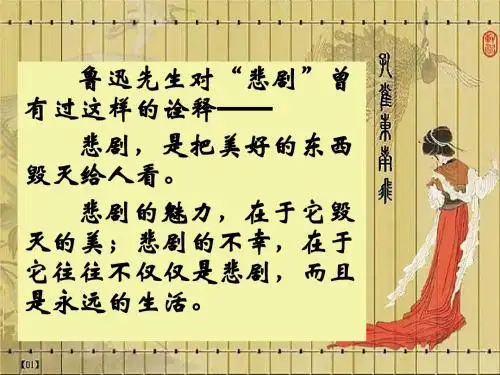 鲁迅先生对“悲剧”曾
有过这样的诠释——
悲剧，是把美好的东西
毁灭给人看。
悲剧的魅力，在于它毁
灭的美；悲剧的不幸，在于
它往往不仅仅是悲剧，而且
是永远的生活。
孔雀東南飛
【01】